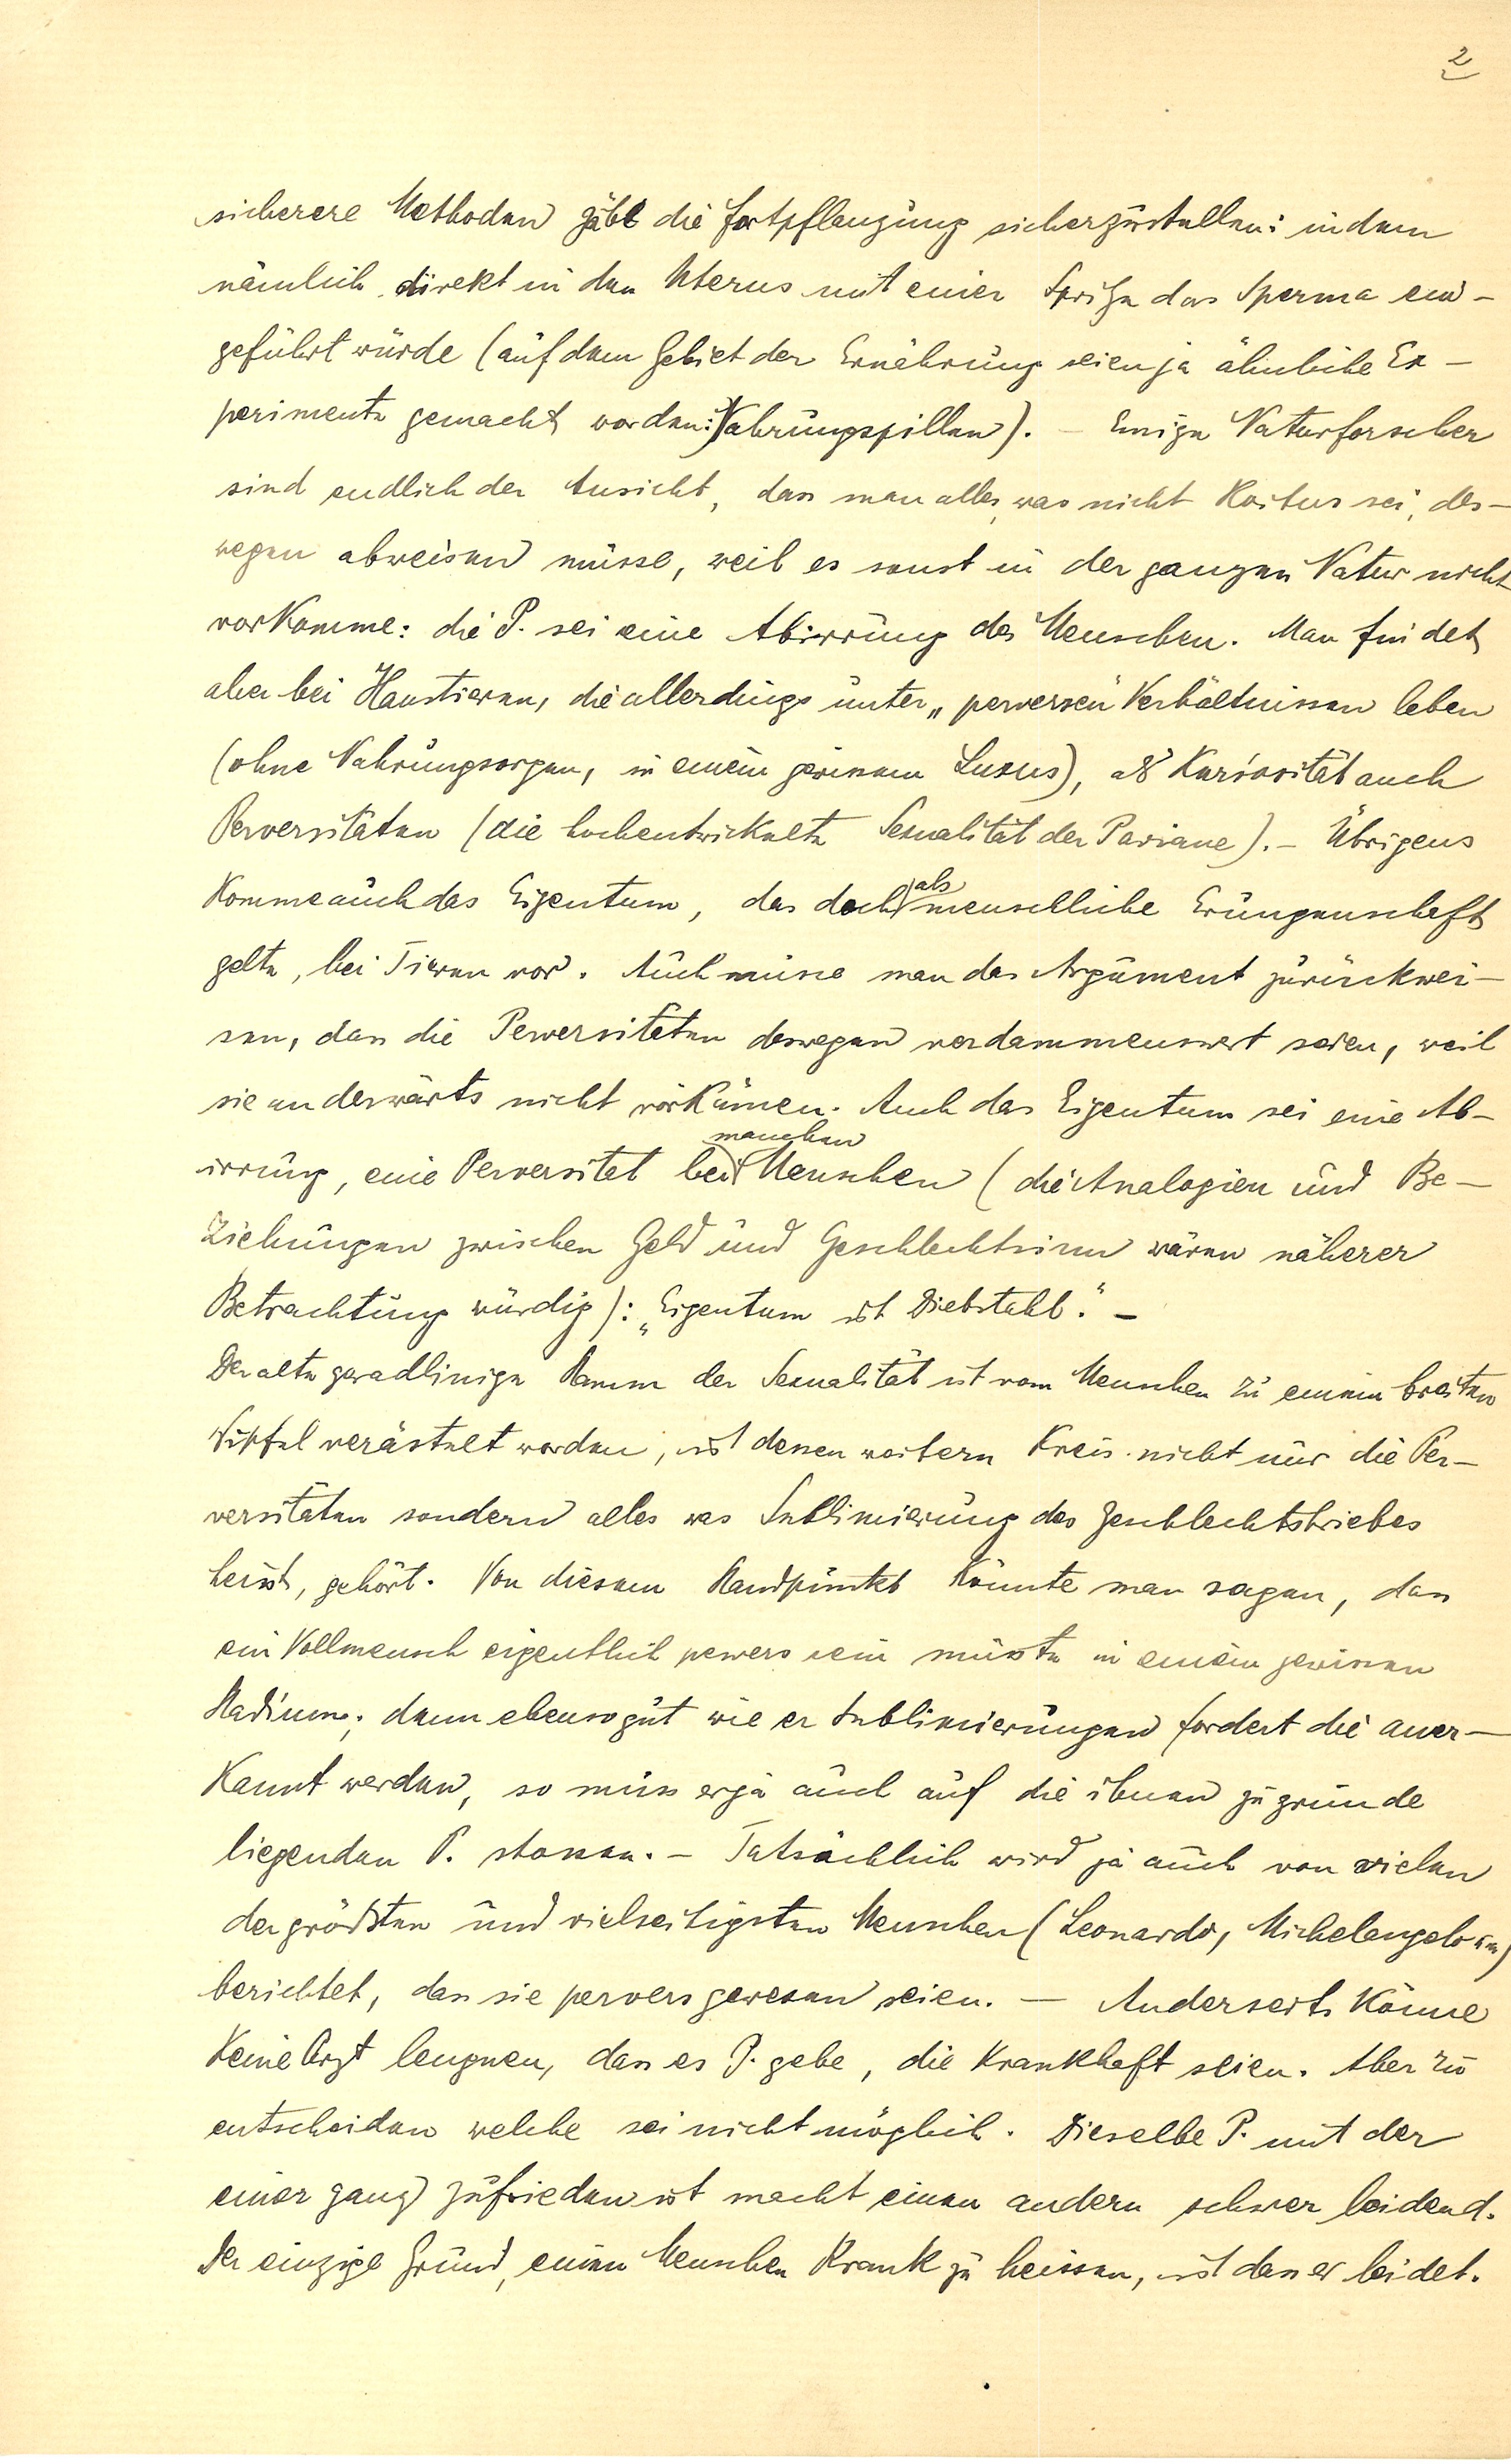 2
sicherere Methoden gäbe die Fortpflanzung sicherzustellen: indem
nämlich direkt in den Uterus mit einer Spritze das Sperma ein-
geführt würde (auf dem Gebiet der Ernährung seien ja ähnliche Ex-
perimente gemacht worden: Nahrungspillen). – Einige Naturforscher
sind endlich der Ansicht, dass man alles, was nicht Koitus sei, des-
wegen abweisen müsse, weil es sonst in der ganzen Natur nicht
vorkomme: die P. sei eine Abirrung des Menschen. Man findet
aber bei Haustieren, die allerdings unter „perversen" Verhältnissen leben
(ohne Nahrungsorgen, in einem gewissen Luxus), als Kuriosität auch
Perversitäten (die hochentwickelte Sexualität der Paviane). – Übrigens
komme auch das Eigentum, das doch als menschliche Errungenschaft
gelte, bei Tieren vor. Auch müsse man das Argument zurückwei-
sen, dass die Perversitäten deswegen verdammenswert seien, weil
sie anderwärts nicht vorkämen. Auch das Eigentum sei eine Ab-
irrung, eine Perversität bei manchen Menschen (die Analogien und Be-
ziehungen zwischen Geld und Geschlechtsinn wären näherer
Betrachtung würdig): „Eigentum ist Diebstahl." –
Der alte geradlinige Stamm der Sexualität ist vom Menschen zu einem breiten
Wipfel verästelt worden, ist dessen weitern Kreis nicht nur die Per-
versitäten sondern alles was Sublimierung des Geschlechtstriebes
heisst, gehört. Von diesem Standpunkt könnte man sagen, dass
ein Vollmensch eigentlich pervers sein müsste in einem gewissen
Stadium; denn ebensogut wie er Sublimierungen fordert die aner-
kannt werden, so muss er ja auch auf die ihnen zugrunde
liegenden P. stossen. – Tatsächlich wird ja auch von vielen
der grössten und vielseitigsten Menschen (Leonardo, Michelangelo
berichtet, dass sie pervers gewesen seien. – Anderseits könne
keine Arzt leugnen, dass es P. gebe, die krankhaft seien. Aber zu
entscheiden welche sei nicht möglich. Dieselbe P. mit der
einer ganz zufrieden ist macht einen andern schwer leidend.
Der einzige Grund, einen Menschen krank zu heissen, ist dass er leidet.